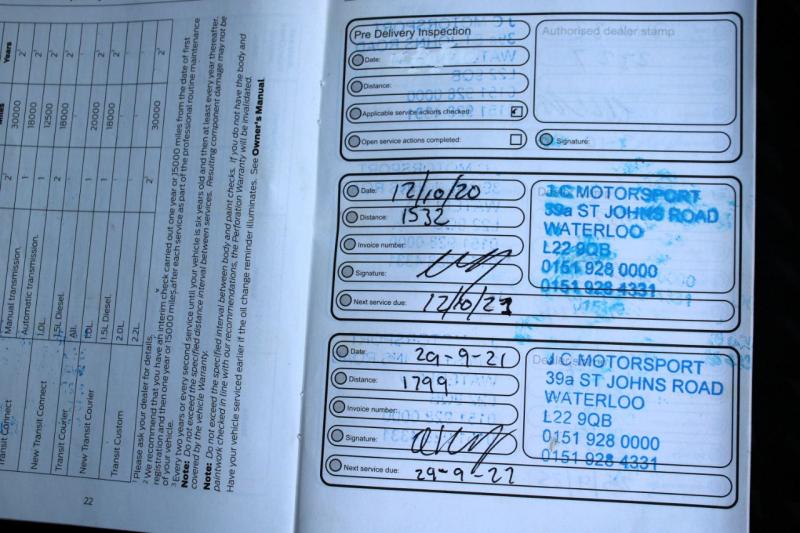 Years
30000 2²
Manual transmission. 18000 2²
New Transit Connect Automatic transmission. 1 12500 2²
Transit Courier 1.0L. 1 18000 2²
1.5L Diesel. 2
New Transit Courier All.
1.0L. 1 20000 2²
Transit Custom 1.5L Diesel. 1 18000 2²
2.0L
2.2L 2² 30000 2²
¹ Please ask your dealer for details.
² We recommend that you have an interim check carried out one year or 15000 miles from the date of first
registration and then one year or 15000 miles after each service as part of the professional routine maintenance
of your vehicle.
³ Every two years or every second service until your vehicle is six years old and then at least every year thereafter.
Note: Do not exceed the specified distance interval between services. Resulting component damage may not be
covered by the vehicle Warranty.
Note: Do not exceed the specified interval between body and paint checks. If you do not have the body and
paintwork checked in line with our recommendations, the Perforation Warranty will be invalidated.
Have your vehicle serviced earlier if the oil change reminder illuminates. See Owner's Manual.
22
Pre Delivery Inspection
Date:
Distance:
Applicable service actions checked:
Open service actions completed:
Authorised dealer stamp
Signature:
Date: 12/10/20
Distance: 1532
Invoice number:
Signature:
Next service due: 12/10/21
J.C. MOTORSPORT
39a ST JOHNS ROAD
WATERLOO
L22 9QB
0151 928 0000
0151 928 4331
Date: 29-9-21
Distance: 1799
Invoice number:
Signature:
Next service due: 29-9-22
J.C. MOTORSPORT
39a ST JOHNS ROAD
WATERLOO
L22 9QB
0151 928 0000
0151 928 4331